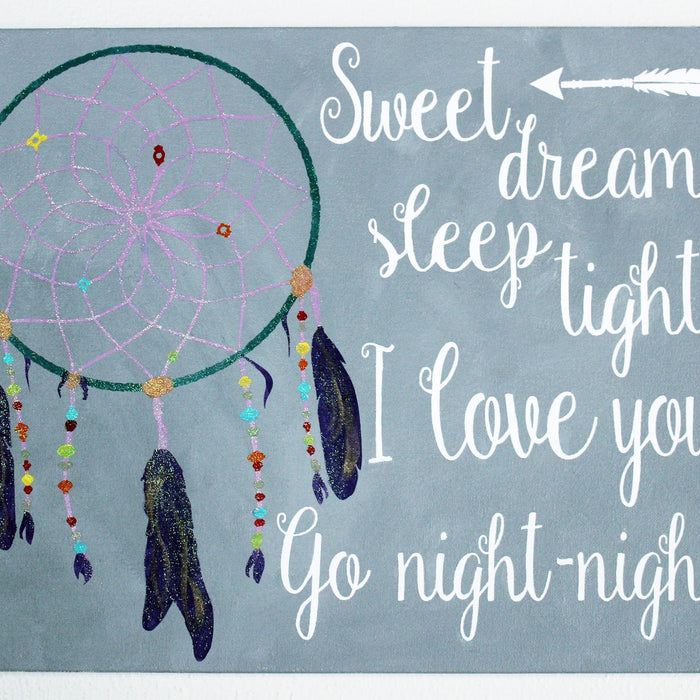 Sweet
dream
sleep
tight
I love you
Go night-nigh